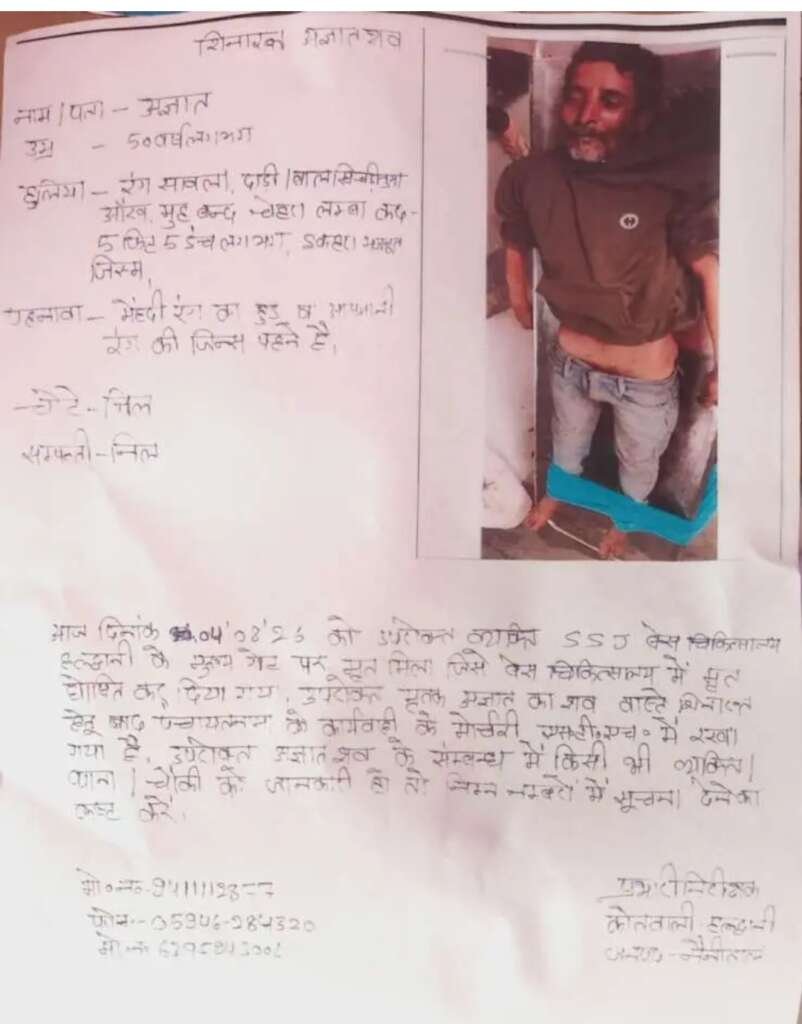 शिनाख्त अज्ञात शव
नाम / पता - अज्ञात
उम्र - 50 वर्ष लगभग
हुलिया - रंग सावला, दाडी / बाल खिचडीनुमा
आँख, मुह बन्द चेहरा लम्बा कद-
5 फिट 5 इंच लगभग, इकहरा मजबूत
जिस्म,
पहनावा - मेंहदी रंग का हुड व आसमानी
रंग की जिन्स पहने है,
चोटे - निल
सम्पत्ती - निल
आज दिनांक 04'08'26 को उपरोक्त व्यक्ति SSJ बेस चिकित्सालय
हल्द्वानी के मुख्य गेट पर मृत मिला जिसे बेस चिकित्सालय में मृत
घोषित कर दिया गया, उपरोक्त मृतक अज्ञात का शव वास्ते शिनाख्त
हेतू बाद पंचायतनामा के कार्यवाही के मोर्चरी एस०टी०एच० में रखा
गया है, उपरोक्त अज्ञात शव के संम्बन्ध में किसी भी व्यक्ति /
थाना / चौकी को जानकारी हो तो निम्न नम्बरों में सूचना देने का
कष्ट करें,
मो०न०-
फोन - 05946-284320
मो०न०
प्रभारी निरीक्षक
कोतवाली हल्द्वानी
जनपद - नैनीताल